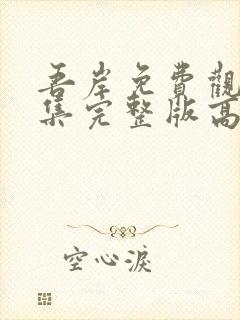 吾岸免費觀
集完整版高
空心淚